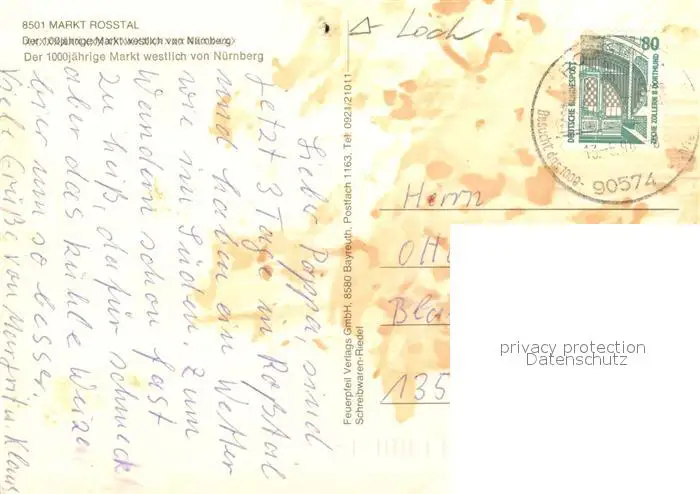 8501 MARKT ROSSTAL
Der 1000jährige Markt westlich von Nürnberg
Der 1000jährige Markt westlich von Nürnberg
Lieber Pappa, sind
jetzt 3 Tage in Roßtal
und haben ein Wetter
wie im Süden. Zum
Wandern schon fast
zu heiß, dafür schmeckt
aber das kühle Weizen
hier um so besser.
Viele Grüße von Margrit u. Klaus
Feuerpfeil Verlags GmbH, 8580 Bayreuth, Postfach 1163, Tel. 0921/21011
Schreibwaren-Riedel
Loch
80
DEUTSCHE BUNDESPOST
ZECHE ZOLLERN II · DORTMUND
Besucht das 1000-
90574
Herrn
Otto
Bla
135
privacy protection
Datenschutz